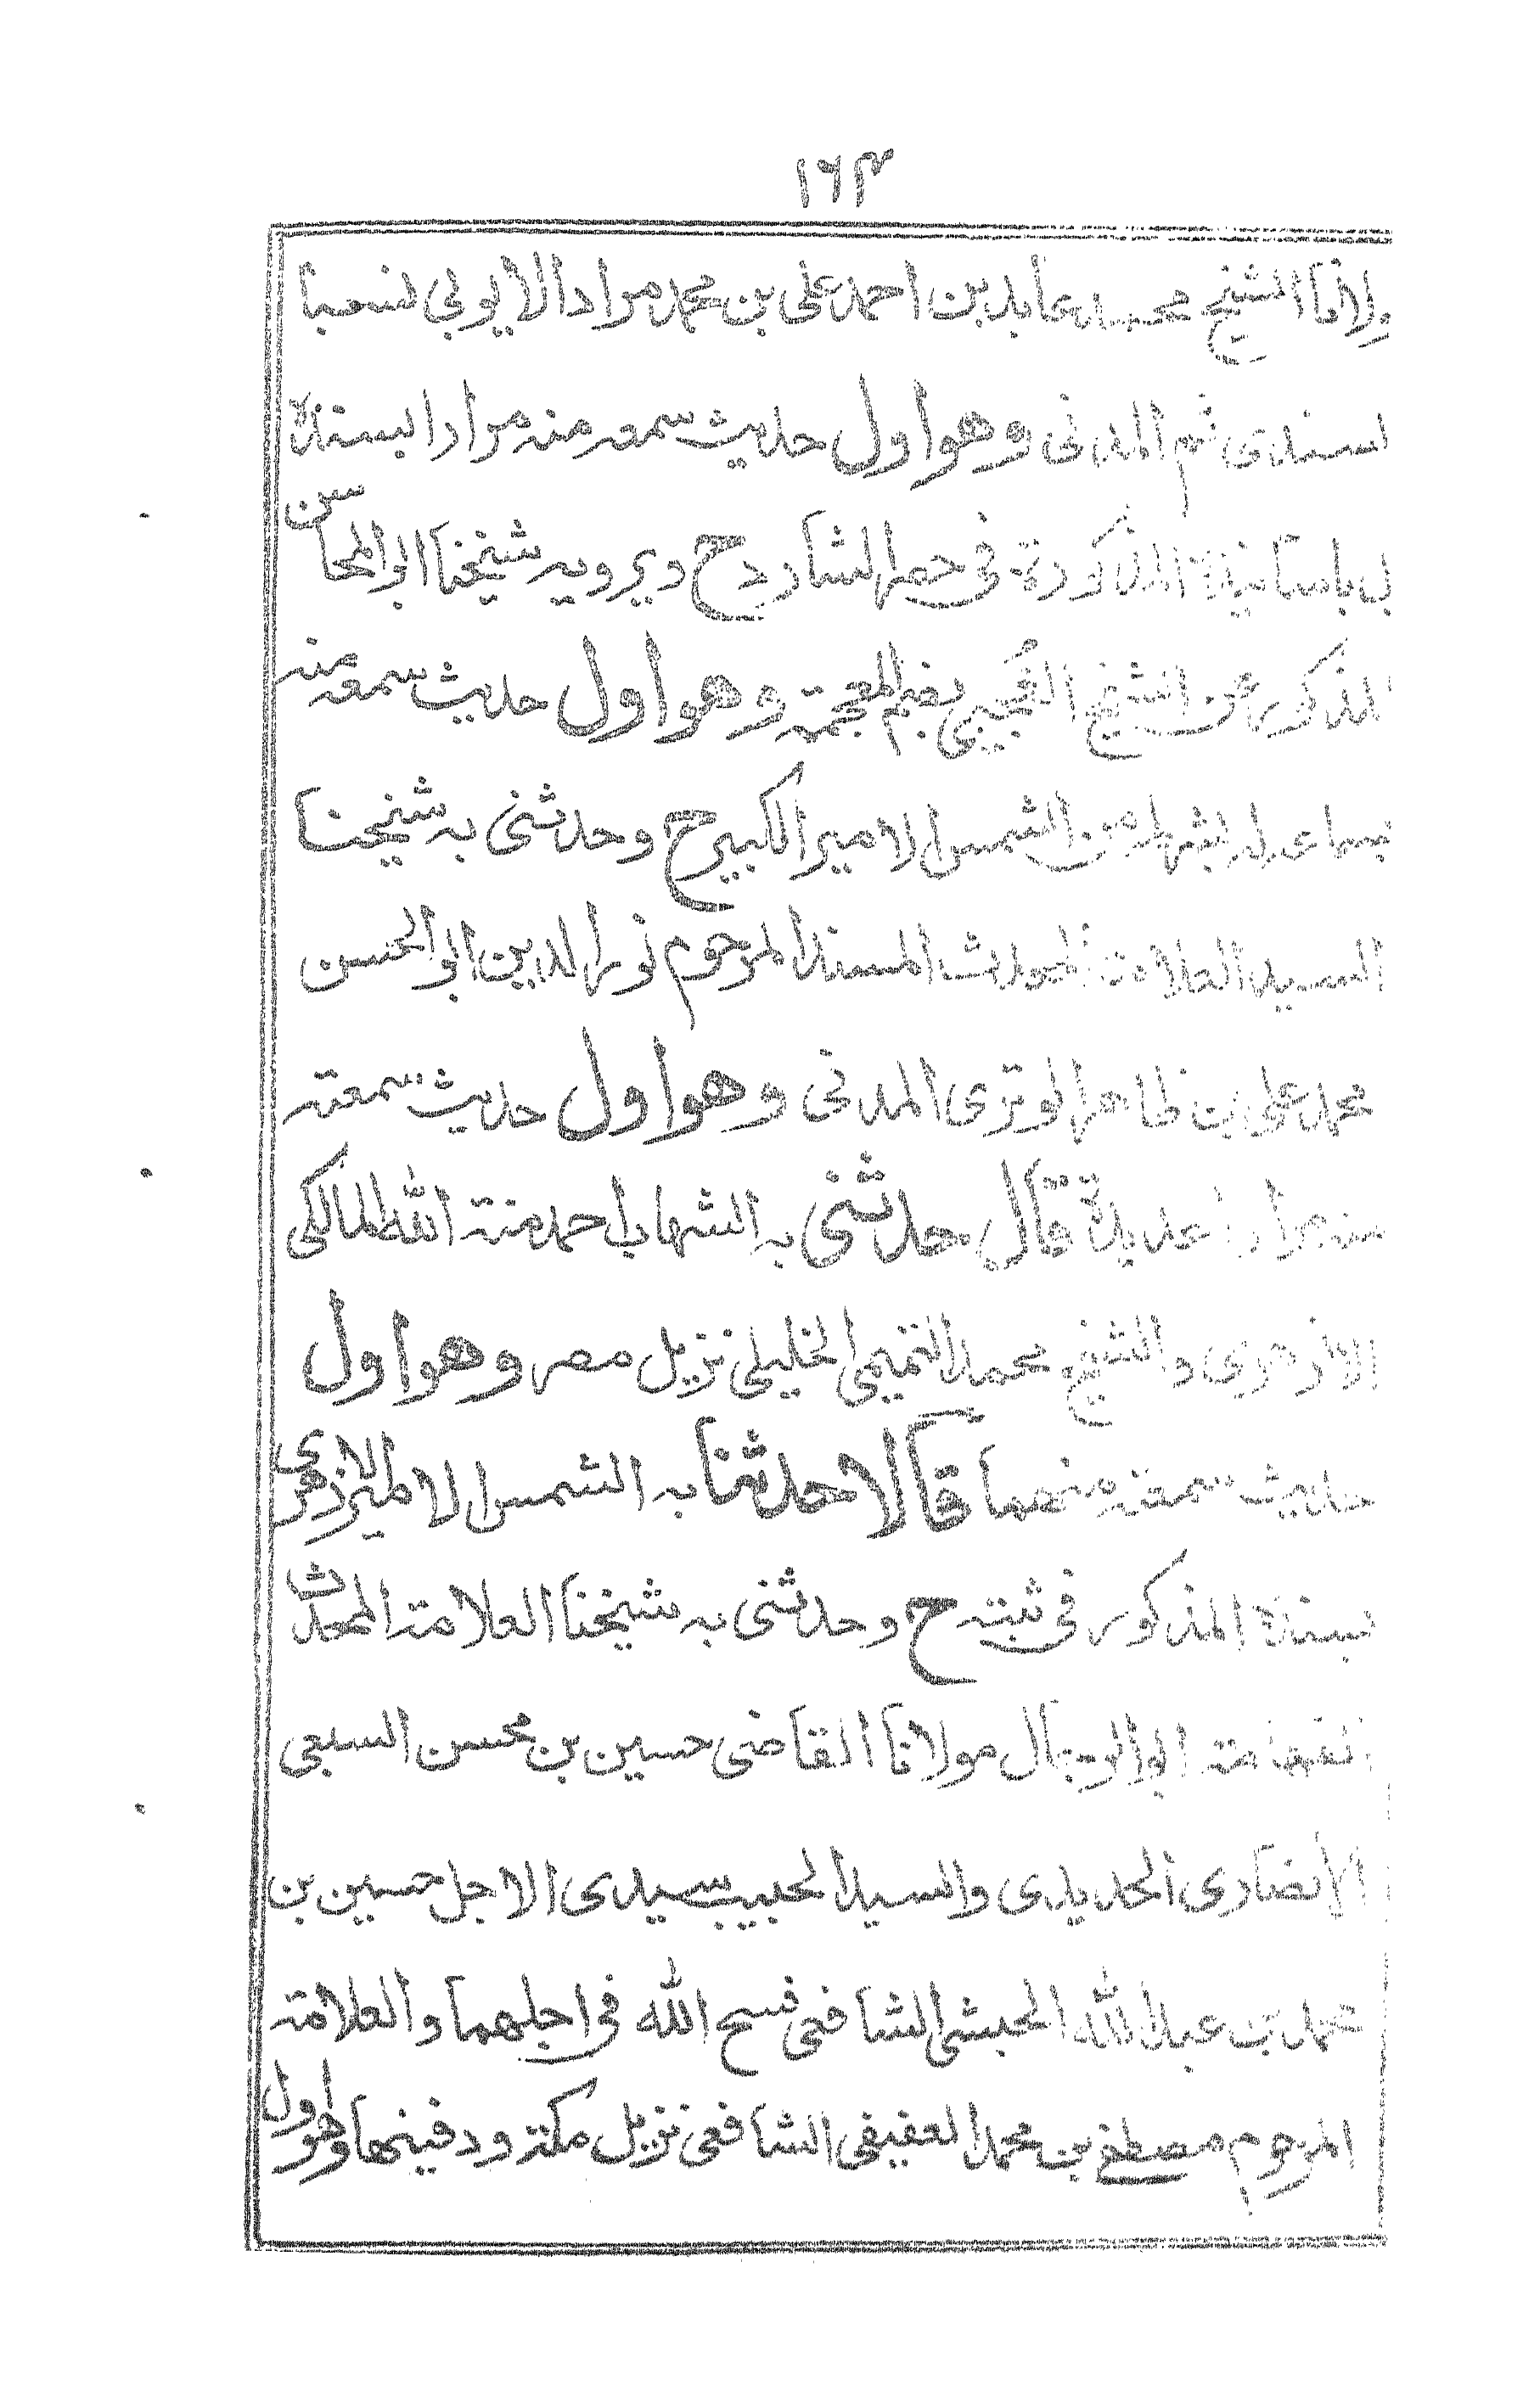 ١٦٣
ولانا الشيخ محمد عابد بن احمد على بن محمد مراد الايوبي نسبا
لسندى ثم المدنى وهو اول حديث سمعه منه مرارا بسنده
بل باسانيده المذكورة فى حصر الشارد ح ويرويه شيخنا ابو المحاسن
المذكور عن الشيخ بضم المعجمة وهو اول حديث سمعه منه
بسماعه له بشرطه عن الشمس الامير الكبير ح وحدثنى به شيخنا
السيد العلامة المحدث المسند المرحوم نور الدين ابو الحسن
محمد على بن ظاهر الوترى المدنى وهو اول حديث سمعته
منه مرارا عديدة قال حدثنى به الشهاب احمد منة الله المالكى
الازهرى والشيخ محمد التميمى الخليلى نزيل مصر وهو اول
حديث سمعته منهما قالا حدثنا به الشمس الامير الازهرى
بسنده المذكور فى ثبته ح وحدثنى به شيخنا العلامة المحدث
الفهامة ابو الرجال مولانا القاضى حسين بن محسن السبعى
الأنصارى الحديدى والسيد الحبيب سيدى الاجل حسين بن
محمد بن عبد الله الحبشى الشافعى فسح الله فى اجلهما والعلامة
المرحوم مصطفى بن محمد العفيفى الشافعى نزيل مكة ودفينها وهو اول